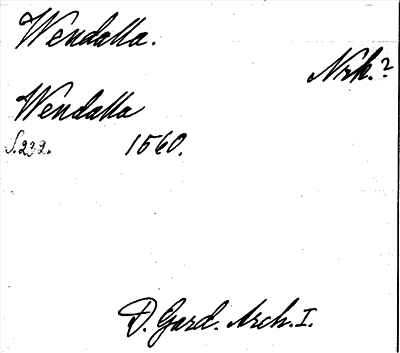 Wendalla.
Nrk.?
Wendalla
S. 232. 1560.
D. Gard. Arch. I.